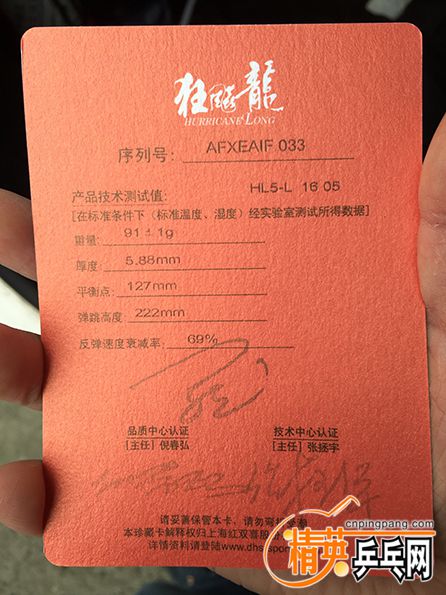 狂飚龍
HURRICANE LONG
序列号: AFXEAIF 033
产品技术测试值: HL5-L 16 05
[在标准条件下（标准温度、湿度）经实验室测试所得数据]
重量: 91±1g
厚度: 5.88mm
平衡点: 127mm
弹跳高度: 222mm
反弹速度衰减率: 69%
品质中心认证 技术中心认证
[主任] 倪春弘 [主任] 张扬宇
请妥善保管本卡、请勿弯折、受潮
本珍藏卡解释权归上海红双喜股份
详情资料请登陆www.dhs-sports
cnpingpang.com
精英乒乓网